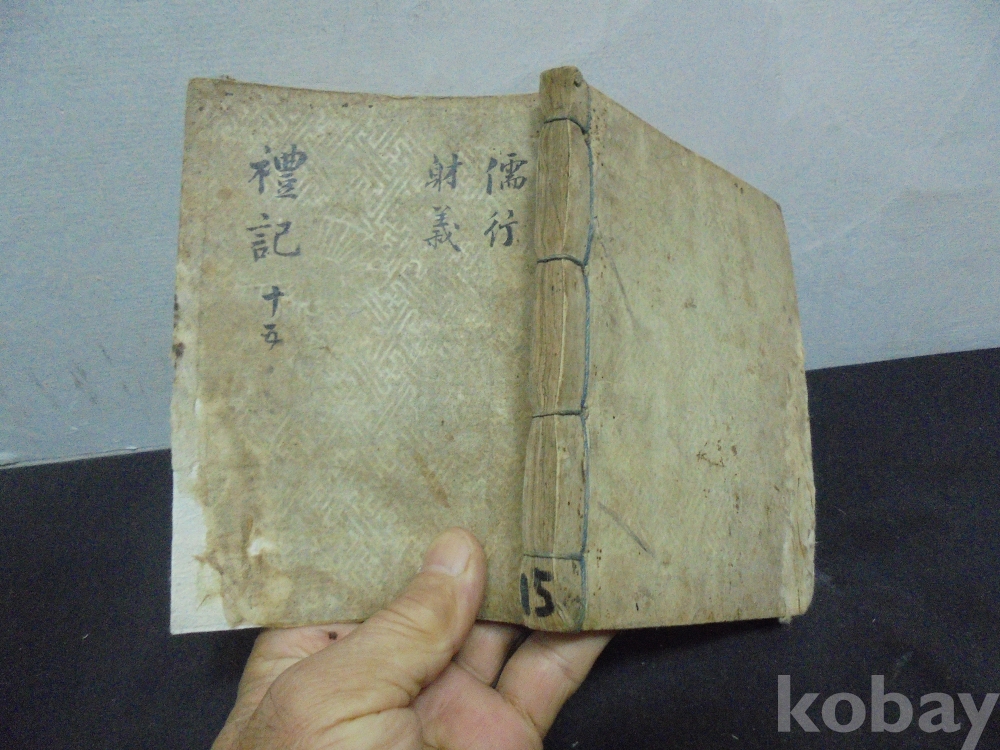 禮記 十五
儒行
射義
15
kobay